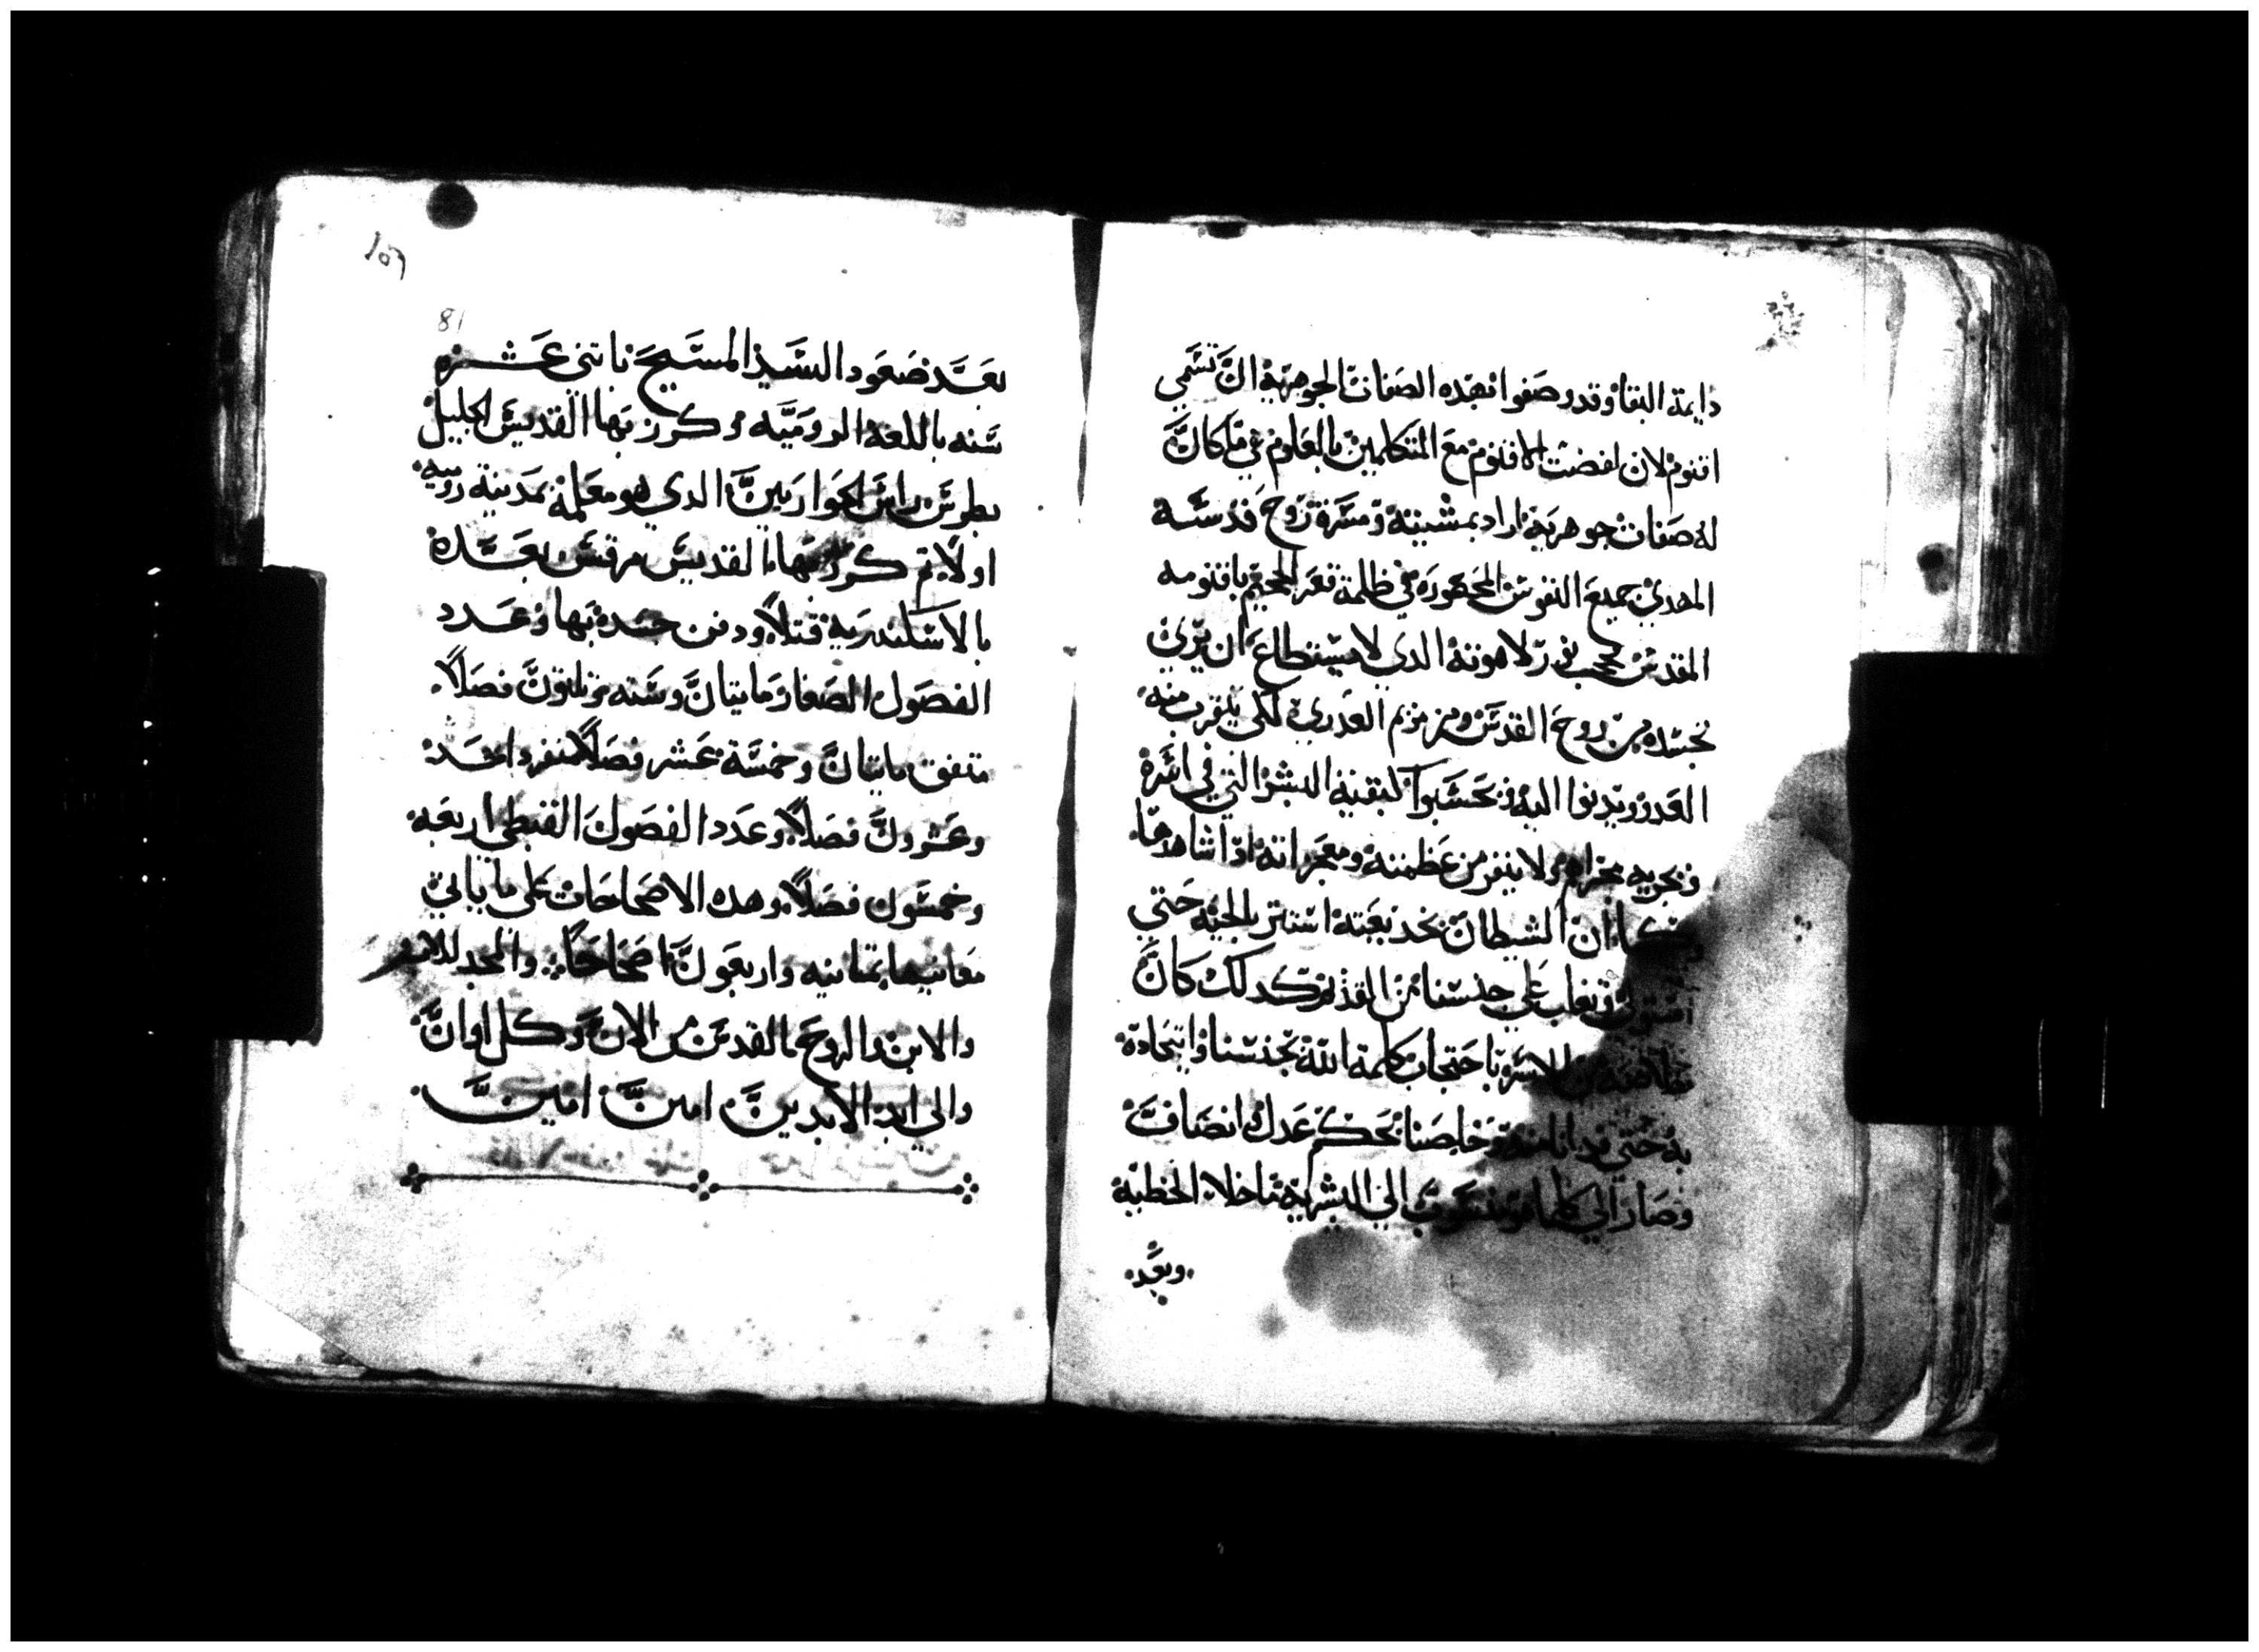 دايمة البقا وقد وصفوا بهده الصفات الجوهرية ان تسمي
اقنوم لان لفضت الاقنوم مع المتكلمين بالعلوم في ما كان
له صفات جوهرية اراد بمشيته ومسرة روح قدسه
المهدي جميع النفوس المحصوره في ظلمة قعر الجحيم باقنومه
المقدس حجب نور لاهوته الدي لا يستطاع ان يري
بجسده من روح القدس ومن مريم العدري لكي يتقرب منه
العدو ويدنوا اليه ويحسبوا كبقية البشر التي في اسره
ويجريه مجراهم ولا ينفر من عظمته ومعجزاته ادا شاهدها
ان الشيطان بخديعته استتر بالحيه حتي
وتغلب علي جنسنا من القدم كدلك كان
باحتجاب كلمة الله بجنسنا واتحاده
به حتي وخلصنا بحكم عدل وانصاف
وصار الي الي البشرية ما خلا الخطية
وبعد
103
81
بعد صعود السيد المسيح باتني عشره
سنه باللغه الروميه وكرز بها القديس الجليل
بطرس راس الحواريين الدي هو معلمه بمدينة روميه
اولا تم كرز بها القديس مرقس بعده
بالاسكندرية قتلا ودفن جسده بها وعدد
الفصول الصغار مايتان وسته وتلتون فصلا
متفق مايتان وخمسة عشر فصلا منفرد احد
وعشرون فصلا وعدد الفصول القبطي اربعه
وخمسون فصلا وهده الاصحاحات علي ما ياتي
معانيها بتمانيه واربعون اصحاحا والمجد للاب
والابن والروح القدس من الان وكل اوان
والي ابد الابدين امين امين